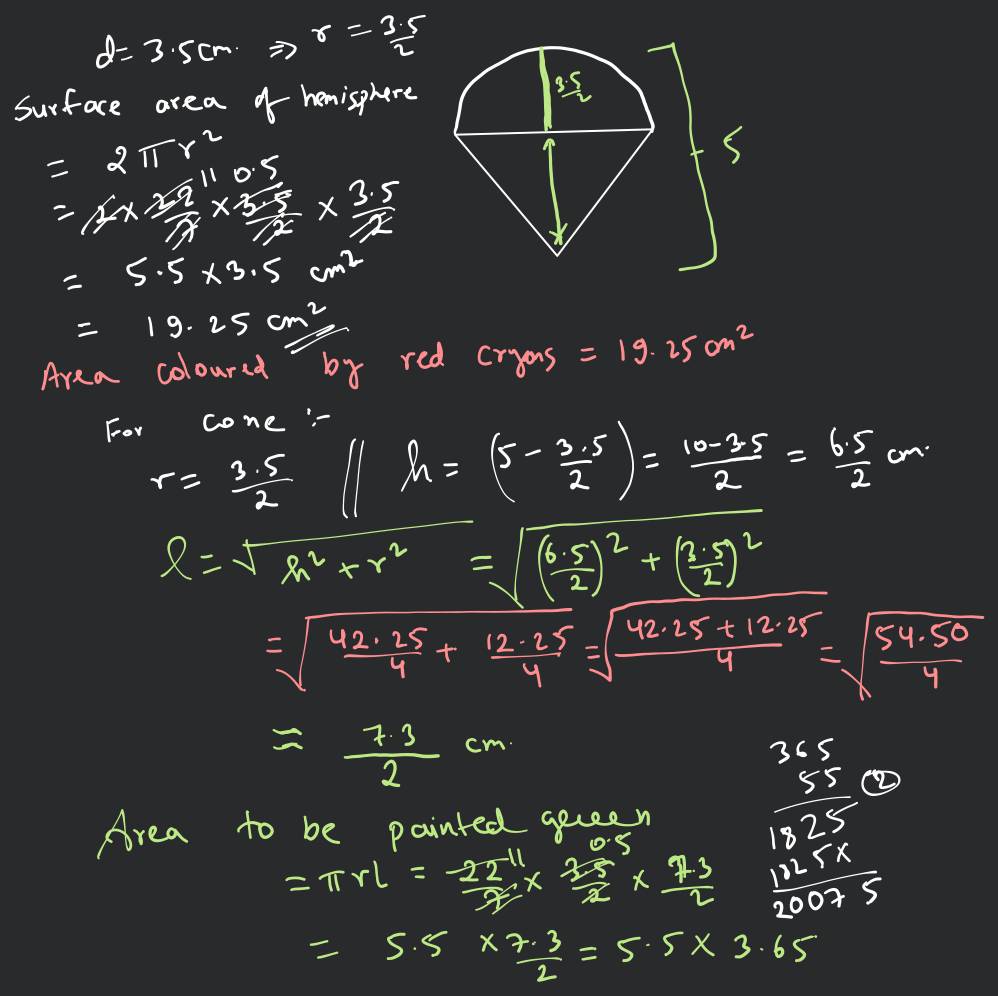 d = 3.5 cm. ⇒ r = 3.5/2
Surface area of hemisphere
= 2πr²
= 2 × 22/7 × 3.5/2 × 3.5/2
11 0.5
= 5.5 × 3.5 cm²
= 19.25 cm²
3.5/2
5
Area coloured by red cryons = 19.25 cm²
For cone :-
r = 3.5/2 || h = (5 - 3.5/2) = 10-3.5/2 = 6.5/2 cm.
l = √h² + r² = √(6.5/2)² + (3.5/2)²
= √42.25/4 + 12.25/4 = √42.25 + 12.25/4 = √54.50/4
= 7.3/2 cm.
Area to be painted green
= πrl = 22/7 × 3.5/2 × 7.3/2
11 0.5
= 5.5 × 7.3/2 = 5.5 × 3.65
365
55 ②
1825
1825×
20075